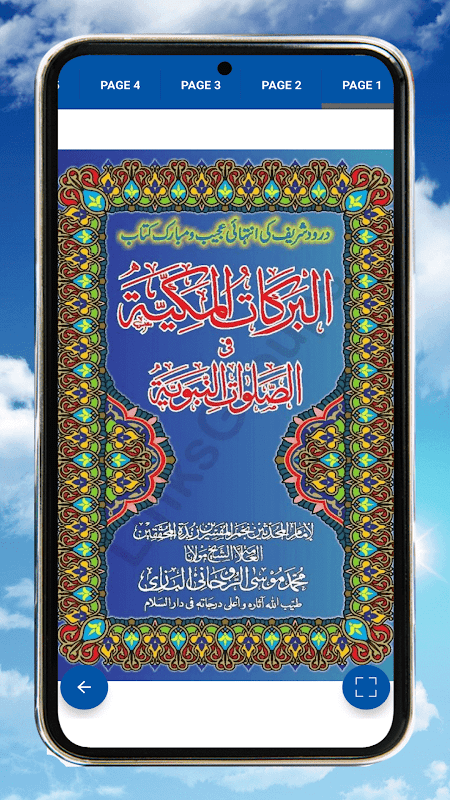 5 PAGE 4 PAGE 3 PAGE 2 PAGE 1
درود شریف کی انتہائی عجیب و مبارک کتاب
البركات المكية
في
الصلوات النبوية
لإمام المحدثين نجم المفسرين زبدة المحققين
العلامة الشيخ مولانا
محمد موسى الروحاني البازي
طيب الله آثاره وأعلى درجاته في دار السلام